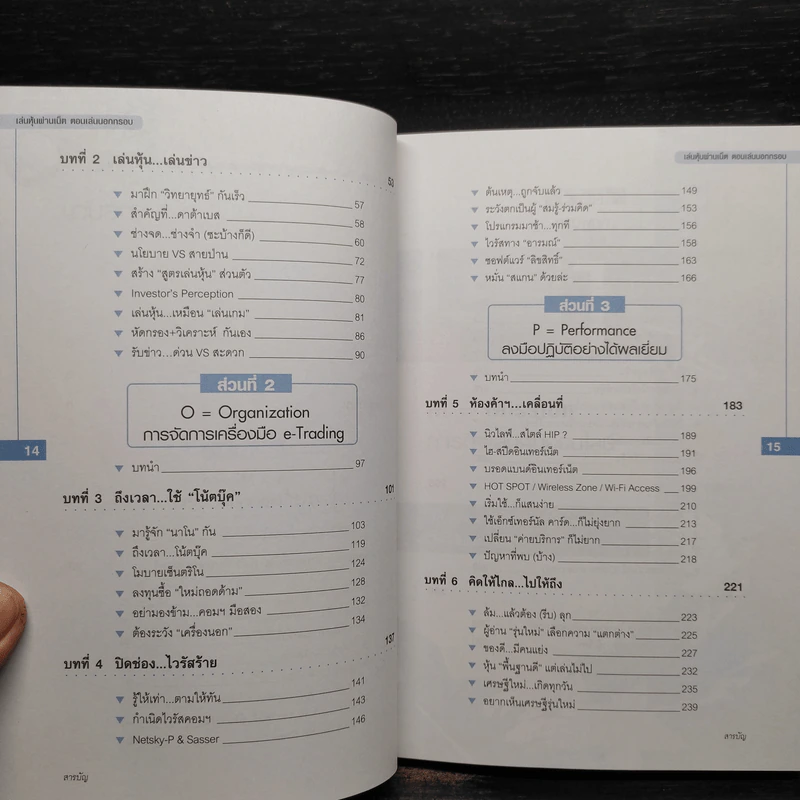 เล่นหุ้นผ่านเน็ต ตอนเล่นนอกกรอบ
บทที่ 2 เล่นหุ้น...เล่นข่าว 53
มาฝึก "วิทยายุทธ์" กันเร็ว 57
สำคัญที่...ดาต้าเบส 58
ช่างจด...ช่างจำ (ซะบ้างก็ดี) 60
นโยบาย VS สายป่าน 72
สร้าง "สูตรเล่นหุ้น" ส่วนตัว 77
Investor's Perception 80
เล่นหุ้น...เหมือน "เล่นเกม" 81
หัดกรอง+วิเคราะห์ กันเอง 86
รับข่าว...ด่วน VS สะดวก 90
ส่วนที่ 2
O = Organization
การจัดการเครื่องมือ e-Trading
บทนำ 97
บทที่ 3 ถึงเวลา...ใช้ "โน้ตบุ๊ค" 101
มารู้จัก "นาโน" กัน 103
ถึงเวลา...โน้ตบุ๊ค 119
โมบายเซ็นตริโน 124
ลงทุนซื้อ "ใหม่ถอดด้าม" 128
อย่ามองข้าม...คอมฯ มือสอง 132
ต้องระวัง "เครื่องนอก" 134
บทที่ 4 ปิดช่อง...ไวรัสร้าย 137
รู้ให้เท่า...ตามให้ทัน 141
กำเนิดไวรัสคอมฯ 143
Netsky-P & Sasser 146
14
สารบัญ
เล่นหุ้นผ่านเน็ต ตอนเล่นนอกกรอบ
ต้นเหตุ...ถูกจับแล้ว 149
ระวังตกเป็นผู้ "สมรู้-ร่วมคิด" 153
โปรแกรมมาช้า...ทุกที 156
ไวรัสทาง "อารมณ์" 158
ซอฟต์แวร์ "ลิขสิทธิ์" 163
หมั่น "สแกน" ด้วยล่ะ 166
ส่วนที่ 3
P = Performance
ลงมือปฏิบัติอย่างได้ผลเยี่ยม
บทนำ 175
บทที่ 5 ห้องค้าฯ...เคลื่อนที่ 183
นิวไลฟ์...สไตล์ HIP ? 189
ไฮ-สปีดอินเตอร์เน็ต 191
บรอดแบนด์อินเตอร์เน็ต 196
HOT SPOT / Wireless Zone / Wi-Fi Access 199
เริ่มใช้...ก็แสนง่าย 210
ใช้เอ็กซ์เทอร์นัล คาร์ด...ก็ไม่ยุ่งยาก 213
เปลี่ยน "ค่ายบริการ" ก็ไม่ยาก 217
ปัญหาที่พบ (บ้าง) 218
บทที่ 6 คิดให้ไกล...ไปให้ถึง 221
ล้ม...แล้วต้อง (รีบ) ลุก 223
ผู้อ่าน "รุ่นใหม่" เลือกความ "แตกต่าง" 225
ของดี...มีคนแย่ง 227
หุ้น "พื้นฐานดี" แต่เล่นไม่ไป 232
เศรษฐีใหม่...เกิดทุกวัน 235
อยากเห็นเศรษฐีรุ่นใหม่ 239
15
สารบัญ